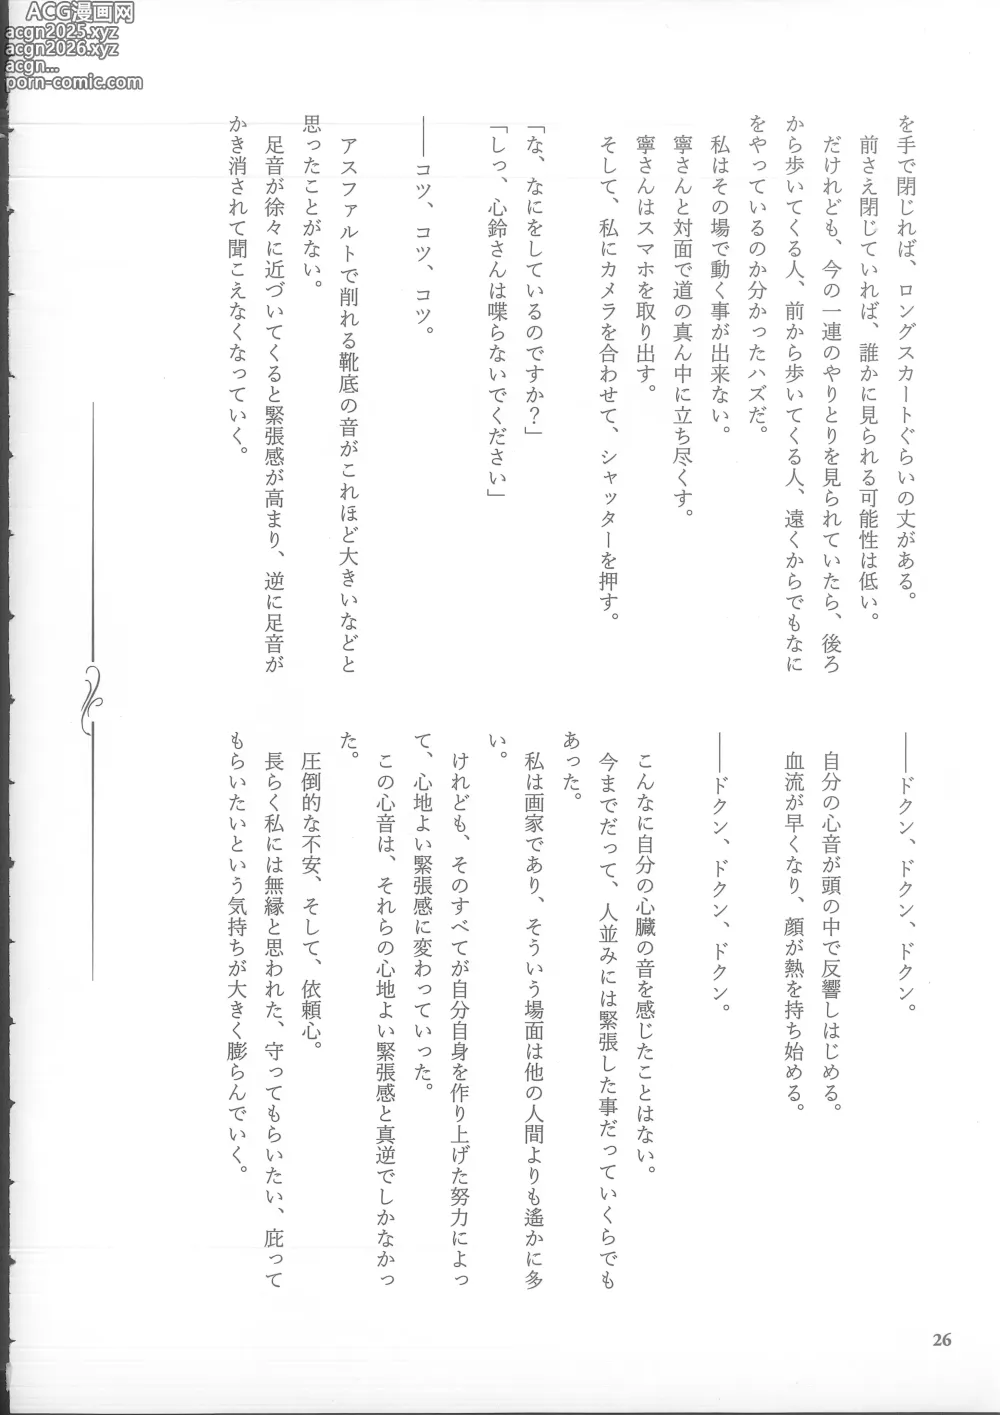 ACG漫画网
acgn2025.xyz
acgn2026.xyz
acgn...
porn-comic.com
を手で閉じれば、ロングスカートぐらいの丈がある。
前さえ閉じていれば、誰かに見られる可能性は低い。
だけれども、今の一連のやりとりを見られていたら、後ろ
から歩いてくる人、前から歩いてくる人、遠くからでもなに
をやっているのか分かったハズだ。
私はその場で動く事が出来ない。
寧さんと対面で道の真ん中に立ち尽くす。
寧さんはスマホを取り出す。
そして、私にカメラを合わせて、シャッターを押す。
「な、なにをしているのですか？」
「しっ、心鈴さんは喋らないでください」
――コツ、コツ、コツ。
アスファルトで削れる靴底の音がこれほど大きいなどと
思ったことがない。
足音が徐々に近づいてくると緊張感が高まり、逆に足音が
かき消されて聞こえなくなっていく。
――ドクン、ドクン、ドクン。
自分の心音が頭の中で反響しはじめる。
血流が早くなり、顔が熱を持ち始める。
――ドクン、ドクン、ドクン。
こんなに自分の心臓の音を感じたことはない。
今までだって、人並みには緊張した事だっていくらでも
あった。
私は画家であり、そういう場面は他の人間よりも遙かに多
い。
けれども、そのすべてが自分自身を作り上げた努力によっ
て、心地よい緊張感に変わっていった。
この心音は、それらの心地よい緊張感と真逆でしかなかっ
た。
圧倒的な不安、そして、依頼心。
長らく私には無縁と思われた、守ってもらいたい、庇って
もらいたいという気持ちが大きく膨らんでいく。
26